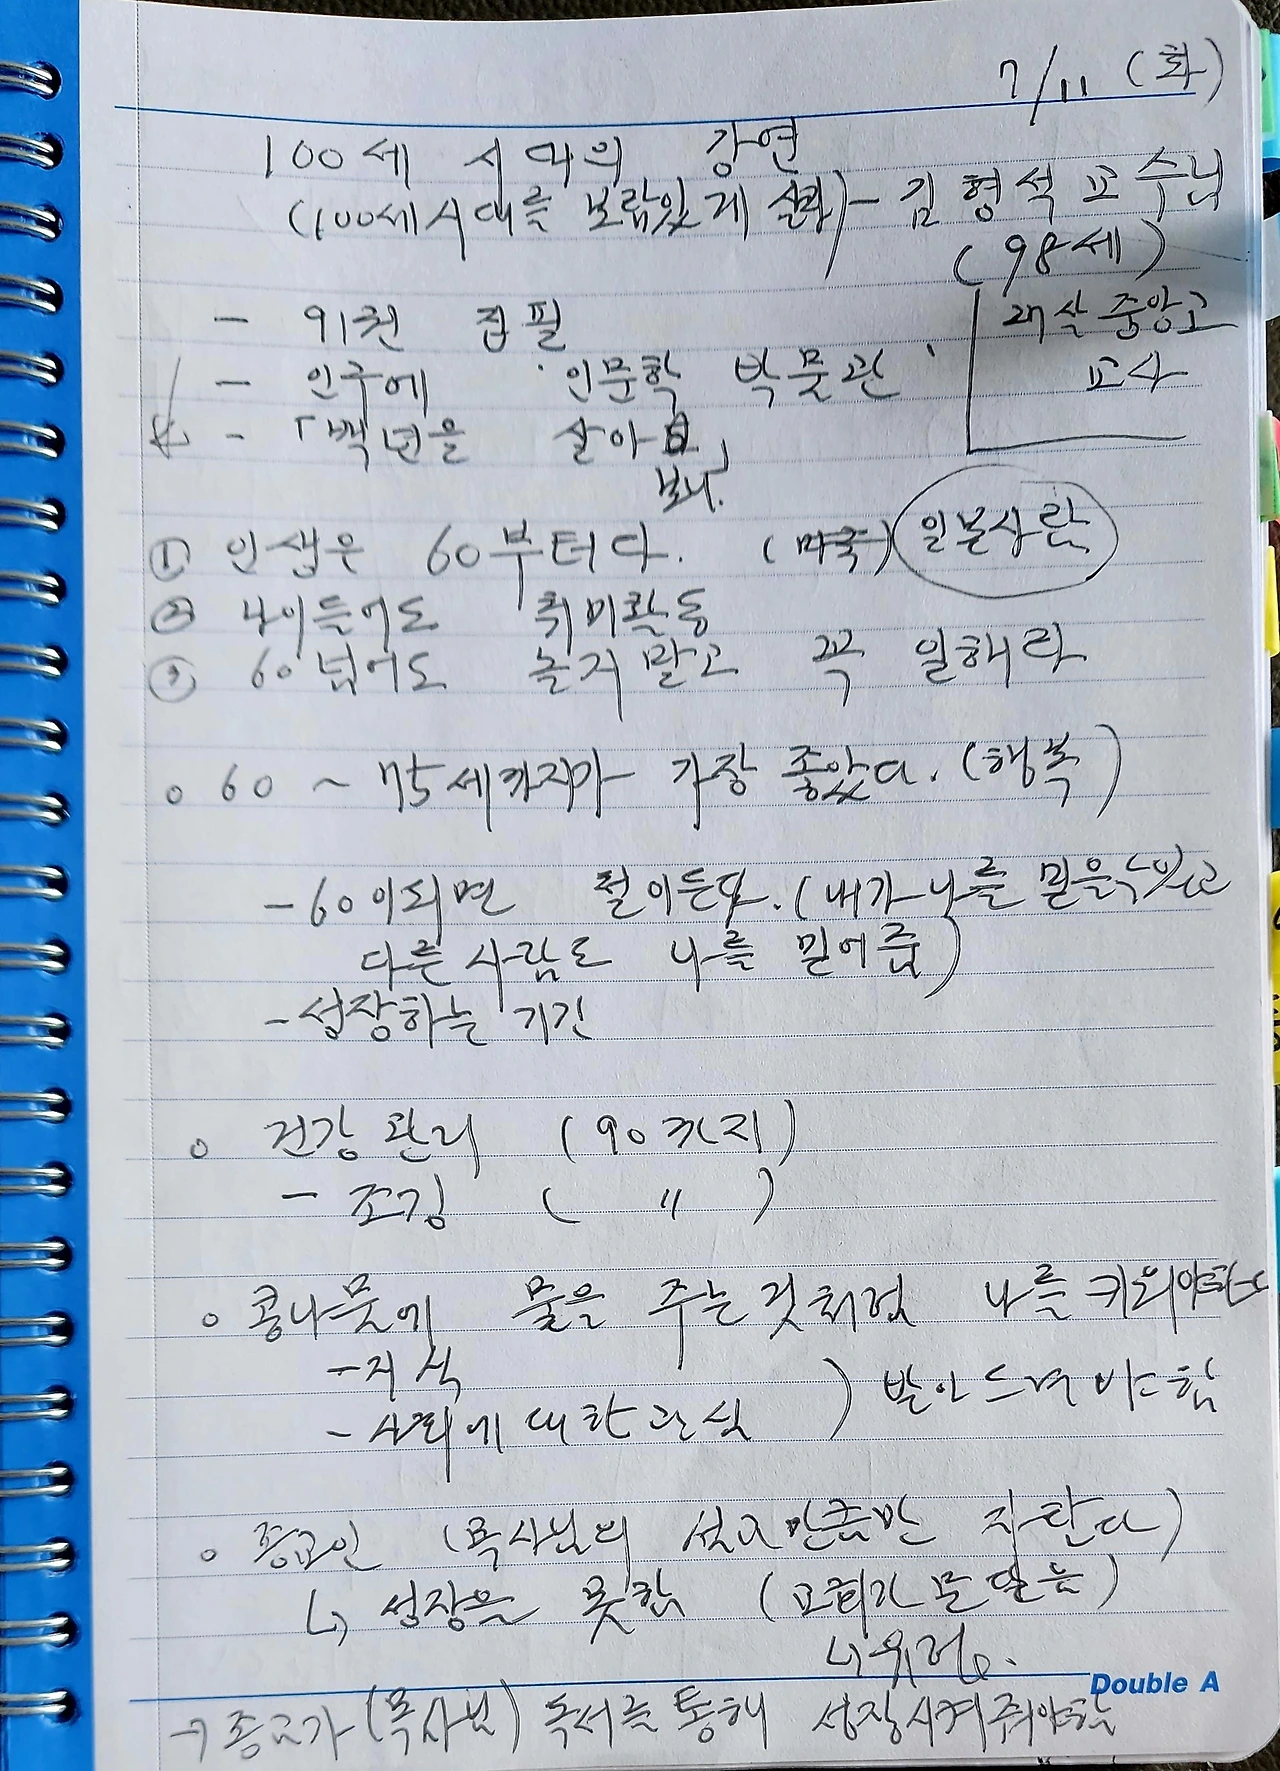 7/11 (화)
100세 시대의 강연
(100세시대를 보람있게 살라) - 김형석 교수님
(98세)
- 91권 집필
- 인구에 '인문학 박물관'
- 「백년을 살아보」
보니.
중앙고
교사
① 인생은 60부터다. (미국) 일본사람
② 나이들어도 취미활동
③ 60넘어도 놀지말고 꼭 일해라
○ 60 ~ 75세까지가 가장 좋았다. (행복)
- 60이되면 철이든다. (내가 나를 믿을수있고
다른 사람도 나를 믿어줌)
- 성장하는 기간
○ 건강관리 (90까지)
- 조깅 ( 〃 )
○ 콩나물에 물을 주는것처럼 나를 키워야한다
- 지식
- 사회에 대한 관심 ) 받아드려야함
○ 종교인 (목사님의 설교만큼만 자란다)
↳ 성장을 못함 (교회가 문닫음)
↳ 유럽.
Double A
→ 종교가 (목사님) 독서를 통해 성장시켜줘야함